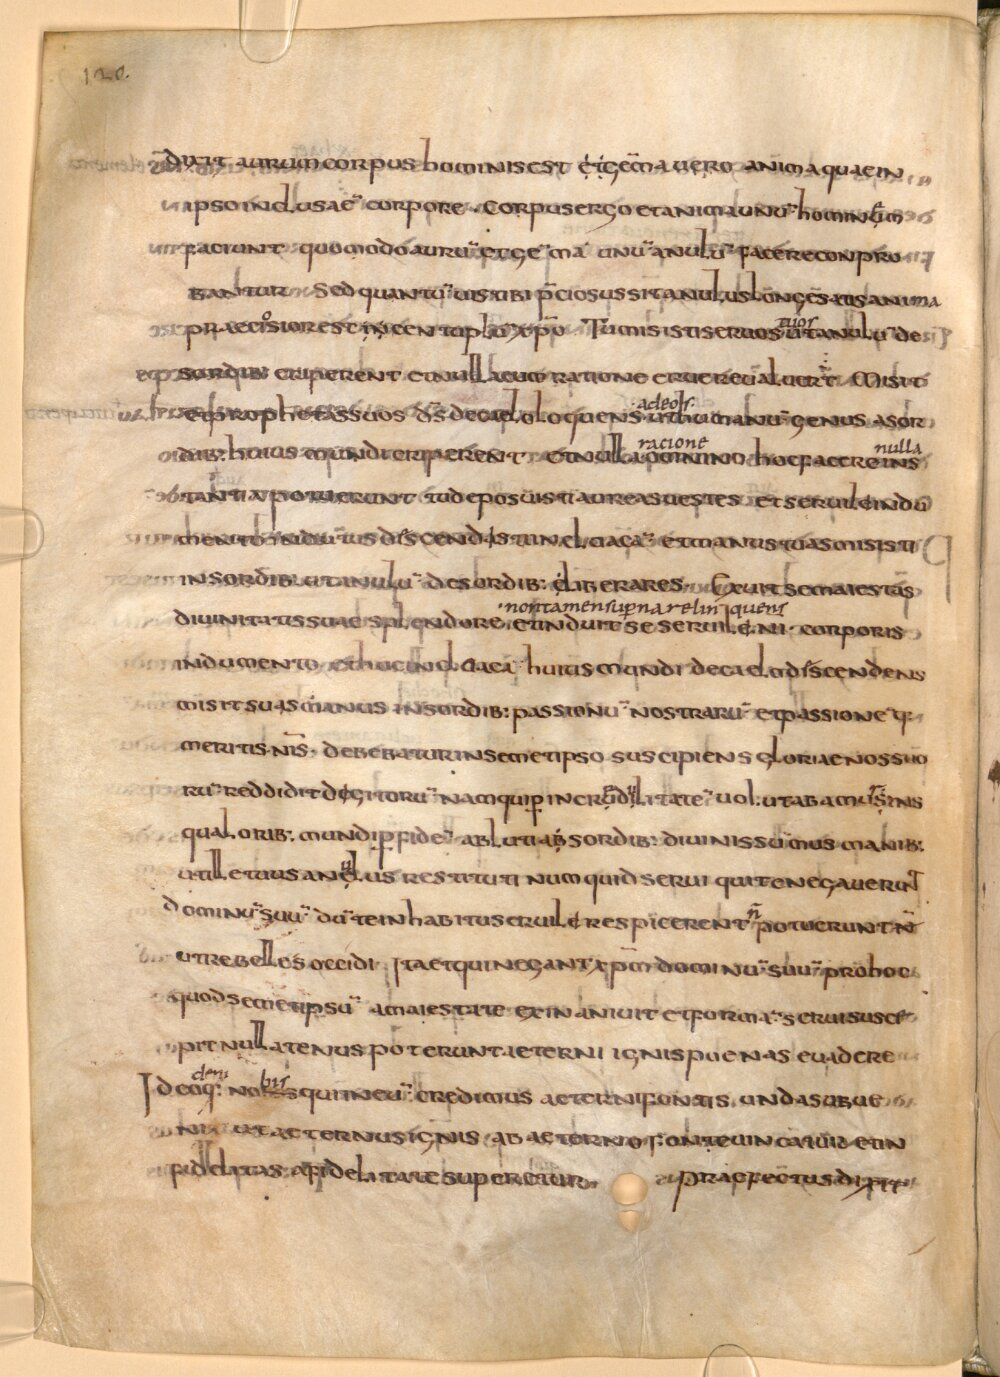 120.
dixit aurum corpus hominis est & gēma uero anima quae in
ipso inclusa ē corpore. Corpus ergo et anima unū hominem
faciunt quomodo aurū et gēma unū anulū facere conpro
bantur Sed quantūuis tibi p̄ciosus sit anulus longe eius anima
praeciosior est in centuplū xp̄o Tu misisti seruos tuos ut anulū de
sordib: eriperent et nulla cum ratione eruere ualuer̄t Misit
et prophetas suos d̄s de caelo loquens adeos ut humanū genus a sor
dib: huius mundi eriperent et nulla racione omnino hoc facere nulla ins
tantia potuerunt tu deposuisti aureas uestes et seruile indu
mento indutus discendisti in cloacā et manus tuas misisti
in sordib: ut anulū de sordib: liberares. Exuit se maiestas
diuinitatis suae splendore non tamen superna relinquens et induit se seruile ni corporis
indumento et hoc in cloacā huius mundi de caelo discendens
misit suas manus in sordib: passionū nostrarū et passione q:
meritis nr̄is debebatur in semetipso suscipiens gloriae nos suo
rū reddidit degitorū nam qui p incredulitate uolutabamur ins
qualorib: mundi p fidē abluti a sordib: diuinis sumus manib:
ut ille tuus anulus restituti numquid serui qui te negauerunt
dominū suū dū te in habitu seruile respicerent n̄ potuerunt n̄
ut rebelles occidi Ita et qui negant xp̄m dominū suū pro hoc
quod semetipsū a maiestate exinaniuit et formā serui susce
pit nullatenus poterunt aeterni ignis poenas euadere
Ideoq: deni nobis qui in eū credimus aeterni fontis unda subue
nit ut aeternus ignis ab aeterno fonte uincatur et in
fidelitas a fidelitate superetur. Praefectus dixit